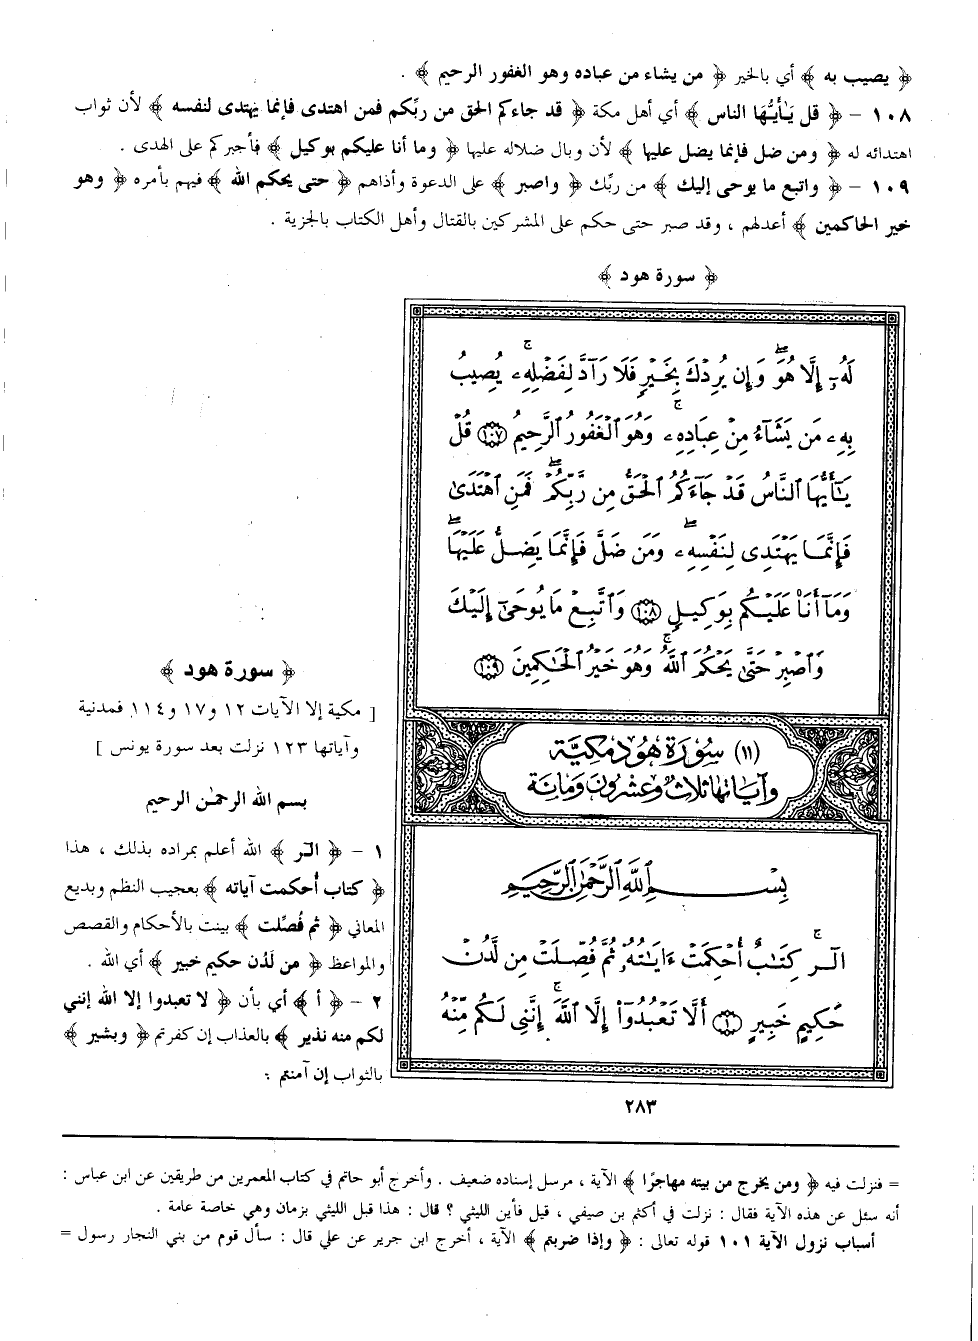 ﴿ يصيب به ﴾ أي بالخير ﴿ من يشاء من عباده وهو الغفور الرحيم ﴾ .
١٠٨ – ﴿ قل يَٰأَيُّهَا الناس ﴾ أي أهل مكة ﴿ قد جاءكم الحق من ربّكم فمن اهتدى فإنما يهتدى لنفسه ﴾ لأن ثواب
اهتدائه له ﴿ ومن ضل فإنما يضل عليها ﴾ لأن وبال ضلاله عليها ﴿ وما أنا عليكم بوكيل ﴾ فأجبركم على الهدى .
١٠٩ – ﴿ واتبع ما يوحى إليك ﴾ من ربّك ﴿ واصبر ﴾ على الدعوة وأذاهم ﴿ حتى يحكم الله ﴾ فيهم بأمره ﴿ وهو
خير الحاكمين ﴾ أعدلهم ، وقد صبر حتى حكم على المشركين بالقتال وأهل الكتاب بالجزية .
﴿ سورة هود ﴾
لَهُۥٓ إِلَّا هُوَۖ وَإِن يُرِدْكَ بِخَيْرٍ فَلَا رَآدَّ لِفَضْلِهِۦۚ يُصِيبُ
بِهِۦ مَن يَشَآءُ مِنْ عِبَادِهِۦۚ وَهُوَ ٱلْغَفُورُ ٱلرَّحِيمُ ١٠٧ قُلْ
يَٰٓأَيُّهَا ٱلنَّاسُ قَدْ جَآءَكُمُ ٱلْحَقُّ مِن رَّبِّكُمْۖ فَمَنِ ٱهْتَدَىٰ
فَإِنَّمَا يَهْتَدِى لِنَفْسِهِۦۖ وَمَن ضَلَّ فَإِنَّمَا يَضِلُّ عَلَيْهَاۖ
وَمَآ أَنَا۠ عَلَيْكُم بِوَكِيلٍ ١٠٨ وَٱتَّبِعْ مَا يُوحَىٰٓ إِلَيْكَ
وَٱصْبِرْ حَتَّىٰ يَحْكُمَ ٱللَّهُۚ وَهُوَ خَيْرُ ٱلْحَٰكِمِينَ ١٠٩
(١١) سُورَة هُود مَكيَّة
وآياتها ثلاث وعشرون ومائة
بِسْمِ ٱللَّهِ ٱلرَّحْمَٰنِ ٱلرَّحِيمِ
الٓرۚ كِتَٰبٌ أُحْكِمَتْ ءَايَٰتُهُۥ ثُمَّ فُصِّلَتْ مِن لَّدُنْ
حَكِيمٍ خَبِيرٍ ١ أَلَّا تَعْبُدُوٓا۟ إِلَّا ٱللَّهَۚ إِنَّنِى لَكُم مِّنْهُ
﴿ سورة هود ﴾
[ مكية إلا الآيات ١٢ و١٧ و١١٤ فمدنية
وآياتها ١٢٣ نزلت بعد سورة يونس ]
بسم الله الرحمٰن الرحيم
١ – ﴿ الٓر ﴾ الله أعلم بمراده بذلك ، هذا
﴿ كتاب أُحكمت آياته ﴾ بعجيب النظم وبديع
المعاني ﴿ ثم فُصِّلت ﴾ بينت بالأحكام والقصص
والمواعظ ﴿ من لَدُن حكيم خبير ﴾ أي الله .
٢ – ﴿ أ ﴾ أي بأن ﴿ لا تعبدوا إلا الله إنني
لكم منه نذير ﴾ بالعذاب إن كفرتم ﴿ وبشير ﴾
بالثواب إن آمنتم .
٢٨٣
= فنزلت فيه ﴿ ومن يخرج من بيته مهاجرًا ﴾ الآية ، مرسل إسناده ضعيف . وأخرج أبو حاتم في كتاب المعمرين من طريقين عن ابن عباس :
أنه سئل عن هذه الآية فقال : نزلت في أكثم بن صيفي ، قيل فأين الليثي ؟ قال : هذا قبل الليثي بزمان وهي خاصة عامة .
أسباب نزول الآية ١٠١ قوله تعالى : ﴿ وإذا ضربتم ﴾ الآية ، أخرج ابن جرير عن علي قال : سأل قوم من بني النجار رسول =